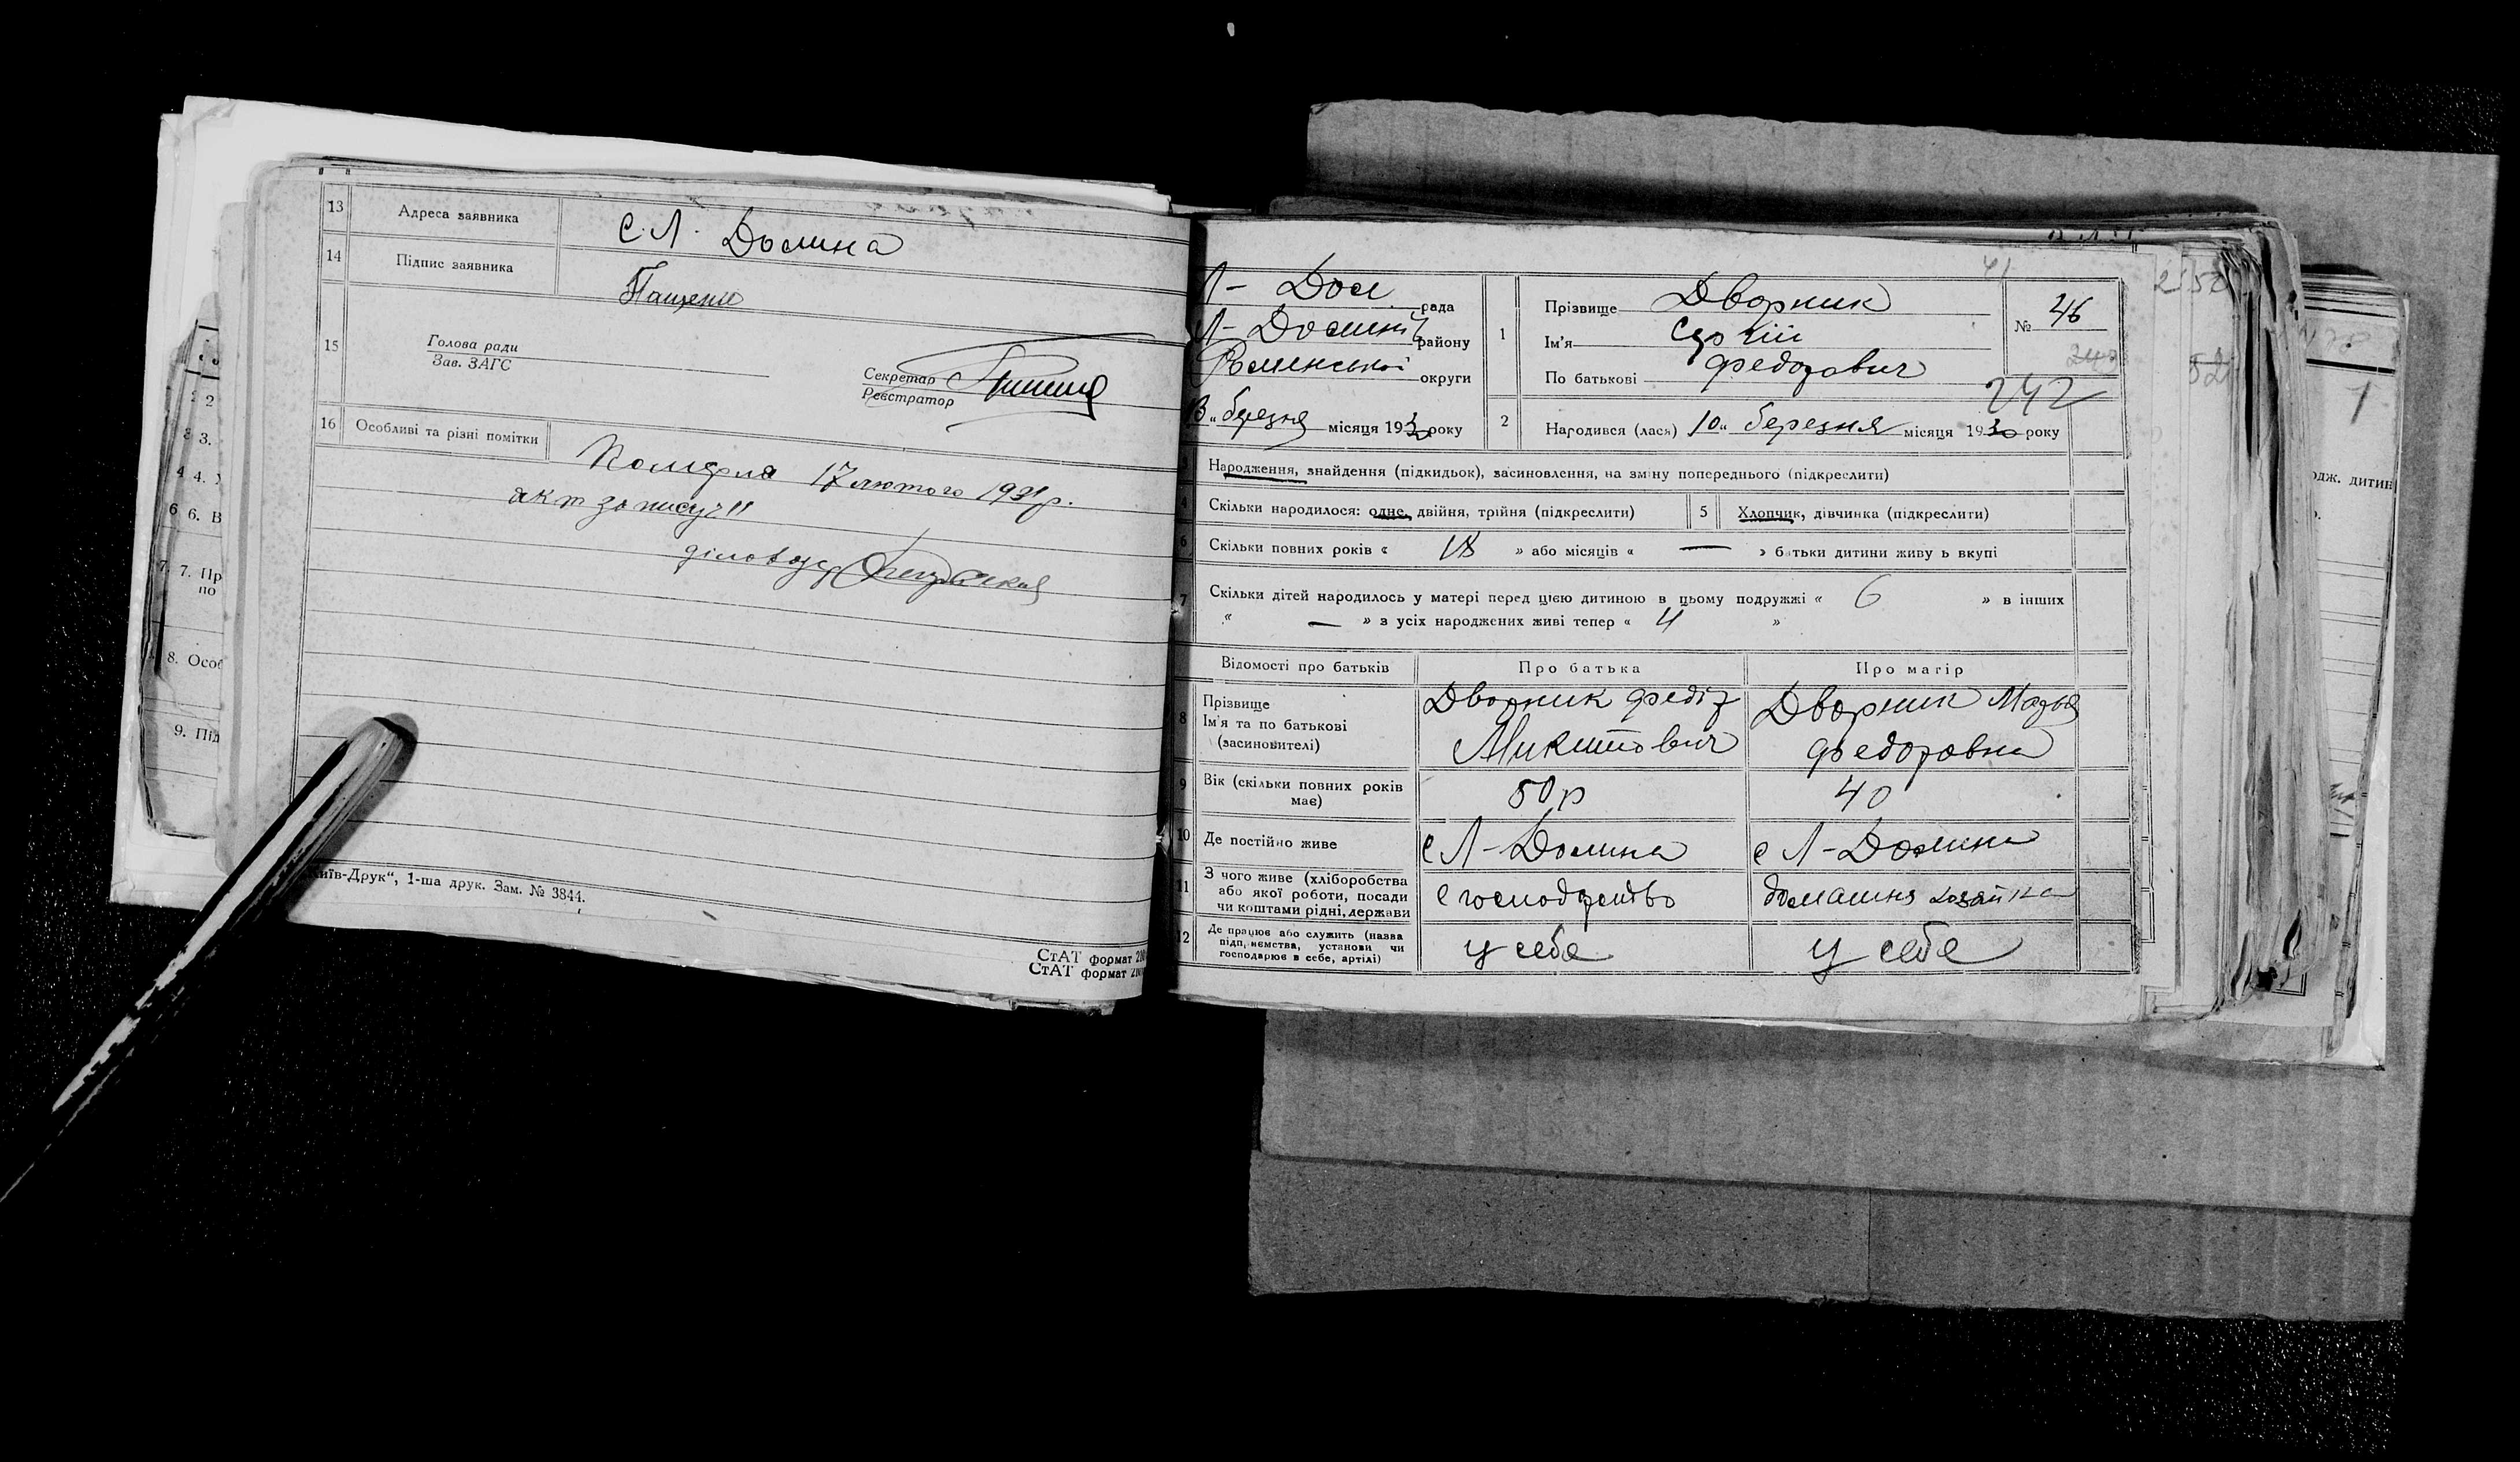 13 Адреса заявника С. Л. Долина
14 Підпис заявника Пащенко
15 Голова ради
Зав. ЗАГС
Секретар
Реєстратор
16 Особливі та різні помітки
Померла 17 лютого 1931 р.
акт запису
діловод
Київ-Друк“, 1-ша друк. Зам. № 3844.
СтАТ формат
СтАТ формат
Л- Дол рада
Л- Долин району
Роменської округи
березня місяця 1930 року
1 Прізвище Дворник
Ім'я Сергій
По батькові Федорович
№ 46
242
2 Народився (лася) 10 „ березня місяця 1930 року
Народження, знайдення (підкидьок), засиновлення, на зміну попереднього (підкреслити)
4 Скільки народилося: одне, двійня, трійня (підкреслити) 5 Хлопчик, дівчинка (підкреслити)
6 Скільки повних років « 18 » або місяців « — » батьки дитини живуть вкупі
7 Скільки дітей народилось у матері перед цією дитиною в цьому подружжі « 6 » в інших
« — » з усіх народжених живі тепер « 4 »
Відомості про батьків Про батька Про матір
8 Прізвище
Ім'я та по батькові
(засиновителі)
Дворник Федір
Микитович
Дворник Марья
Федоровна
9 Вік (скільки повних років має) 50 р 40
10 Де постійно живе с Л-Долина с Л-Долина
11 З чого живе (хліборобства
або якої роботи, посади
чи коштами рідні, держави
с господарство домашня хозяйка
12 Де працює або служить (назва
підприємства, установи чи
господарює в себе, артілі)
у себе у себе